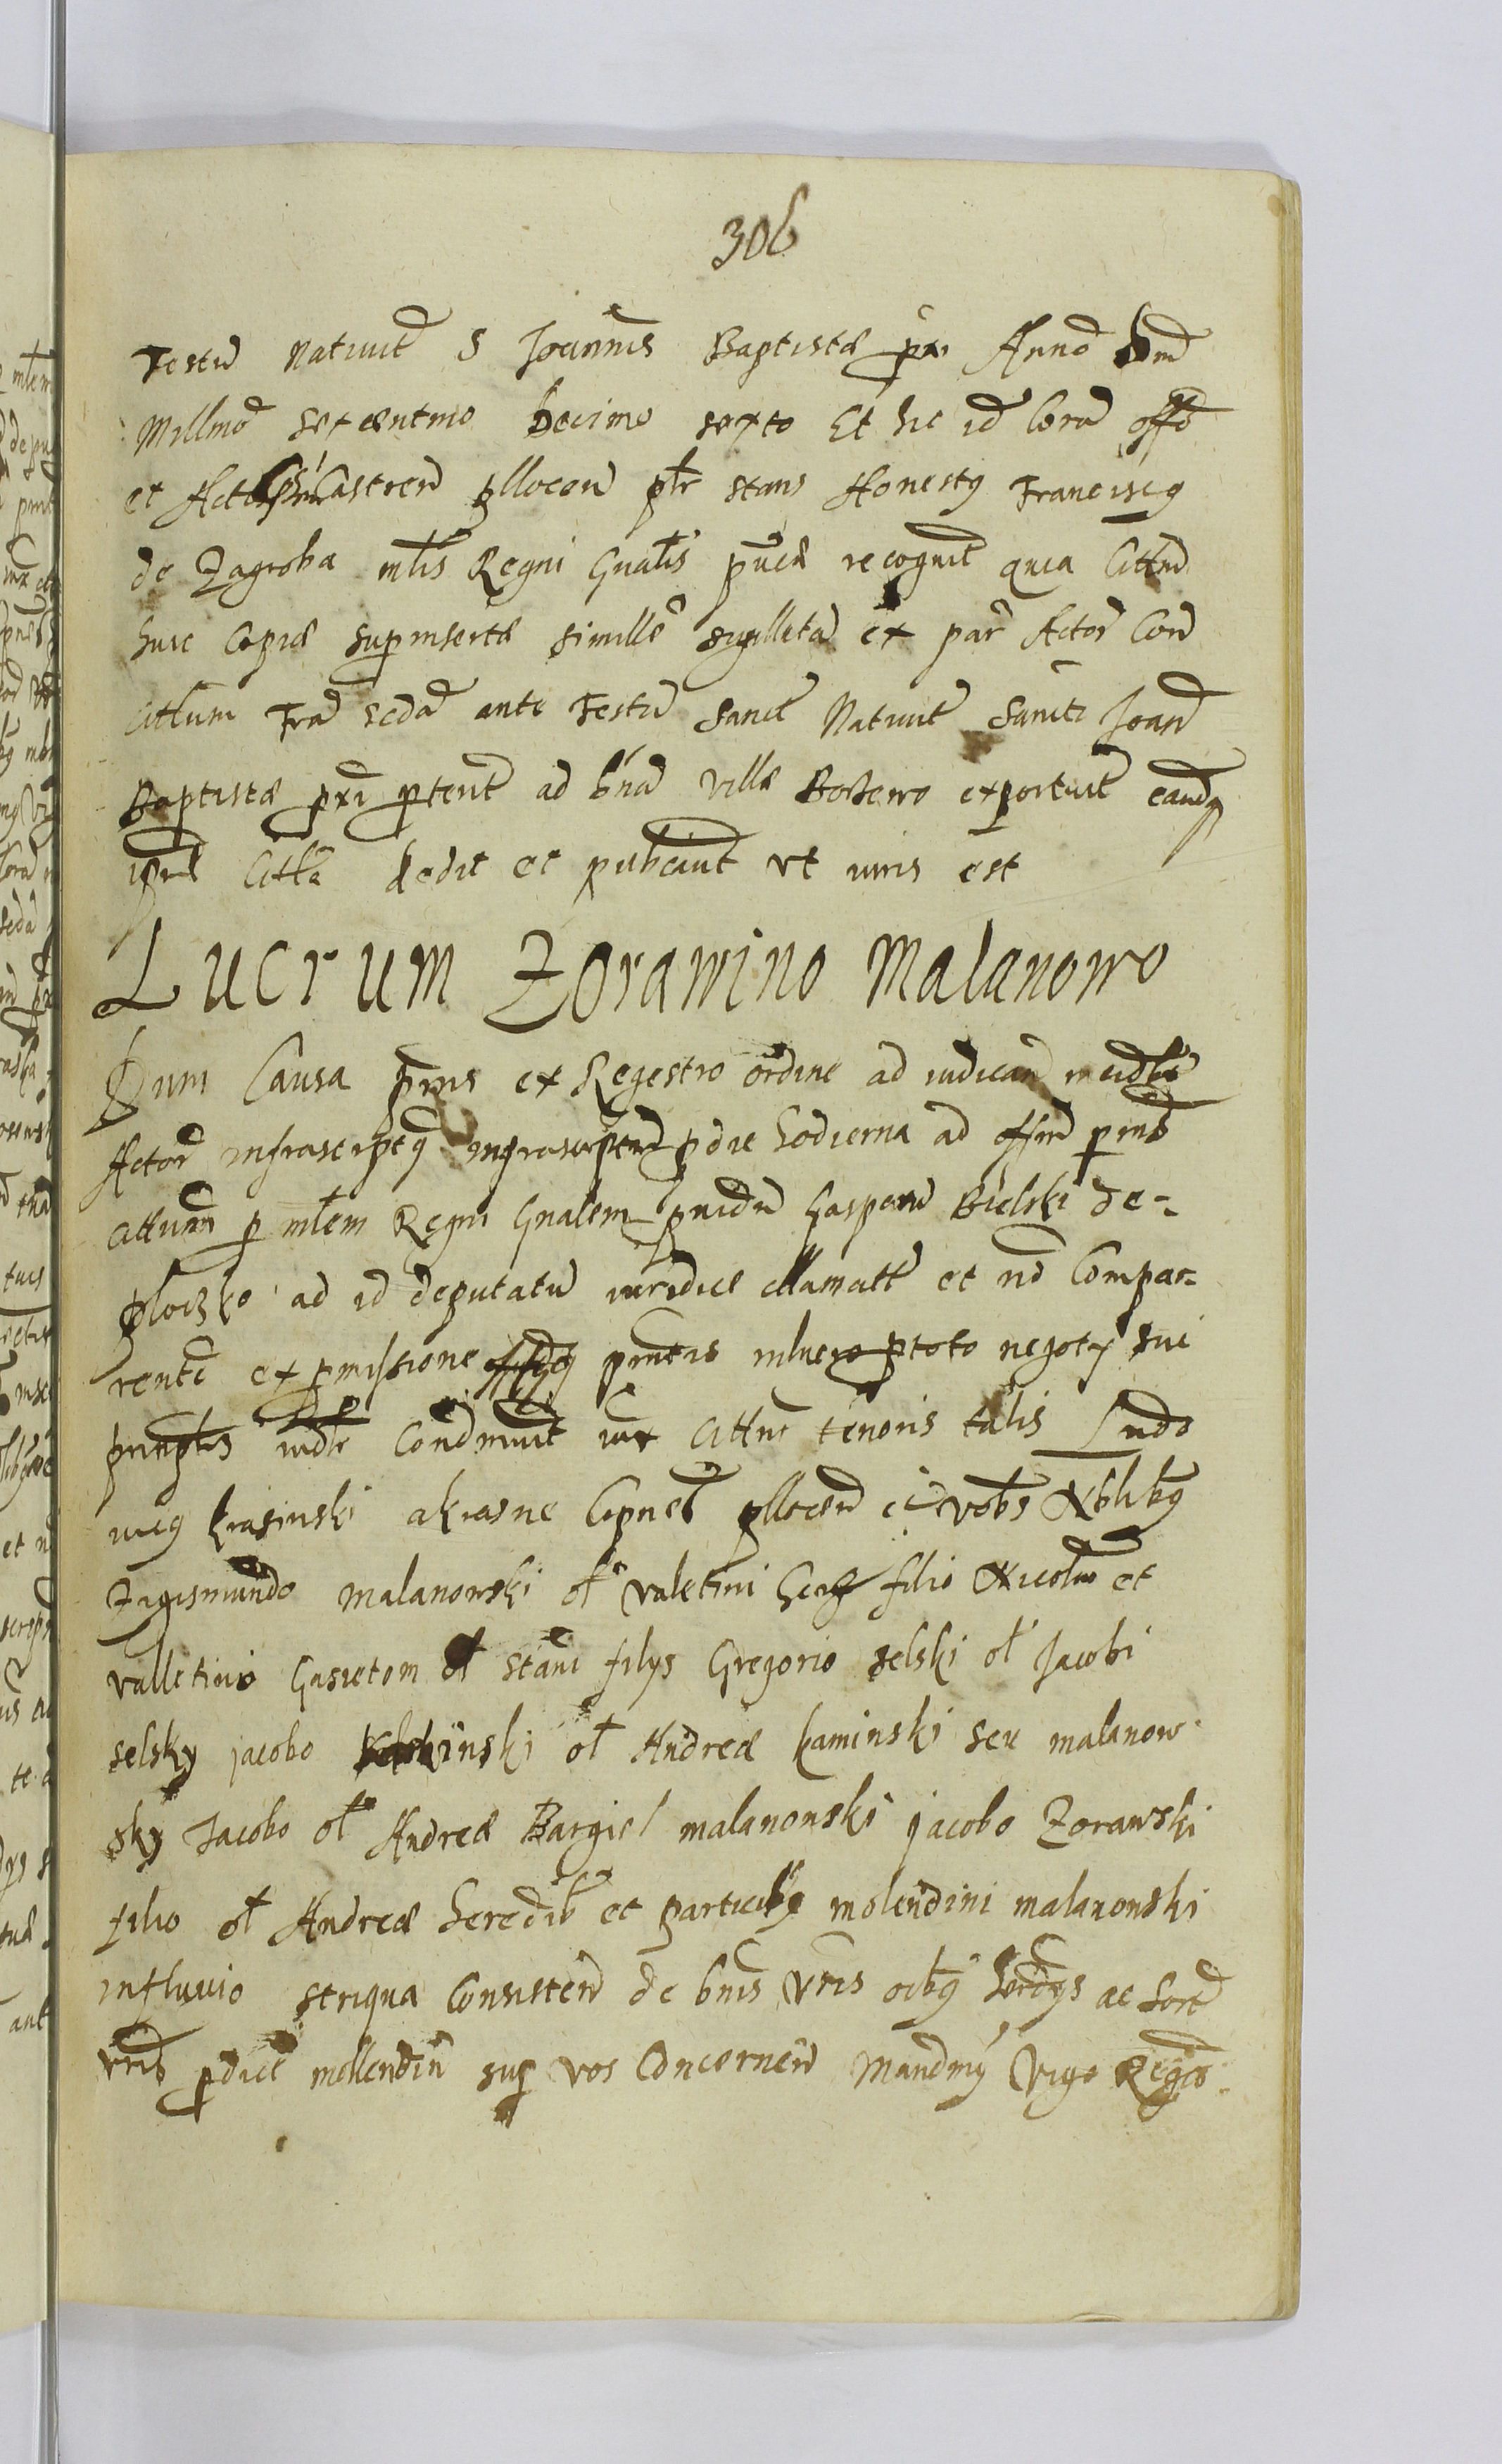 306
Festũ Natiuit S Joannis Baptistæ px Anno Dm̃
Millmo sexcentmo Decimo sexto Et hic id Corã offo
et Actis Castreñ pllocen pltr stans Honestꝯ Franciscꝯ
de Zagroba mtlis Regni Gnalis puciæ recognit quia Cittñe
huic Copiæ suprinsertæ simille sigillatã ex par Actor Con
Cittum Fra secda ante Festũ Sanct Natiuit Sancti Joañ
Baptistæ pxi pterit ad bña Villæ Bozewo exportuit eandꝗ
ipm Citta dedit et publicauit vt iuris est
Lucrum Zorawino Malanowo
Dum Causa pñs ex Regestro ordine ad iudicañ
Actor infrascriptꝯ infrascriptum p die hodierna ad offm pñs
attum p mtlem Regni Gnalem puidũ Gasparũ Bielski de-
Ploczko ad id deputatũ iuridice cllamatt et nõ Compar-
rente ex pmissione offꝗ pñtis in lucro p toto negoty sui
principlis iudlr Condmnit iux Cittne tenoris talis Ludo
uicꝯ krasinski a krasne Cpnel pllocen ic vobis Nblibꝯ
Zigismundo Malanowski ol Valetini filio Nicolao et
Valletino Gasietom ol Stani filys Gregorio selski ol Jacobi
selsky jacobo ol Andreæ kaminski seu malanow
sky Jacobo ol Andreæ Bargiel malanowski jacobo Zorawski
filio ol Andreæ heredib et particibꝯ molendini malanowski
in fluuio striqua Consisteñ de bnis Vris oibꝯ herdys ac sort
vris pdict mollendin sup vos Concerneñ Mandmꝯ Vigo Regia